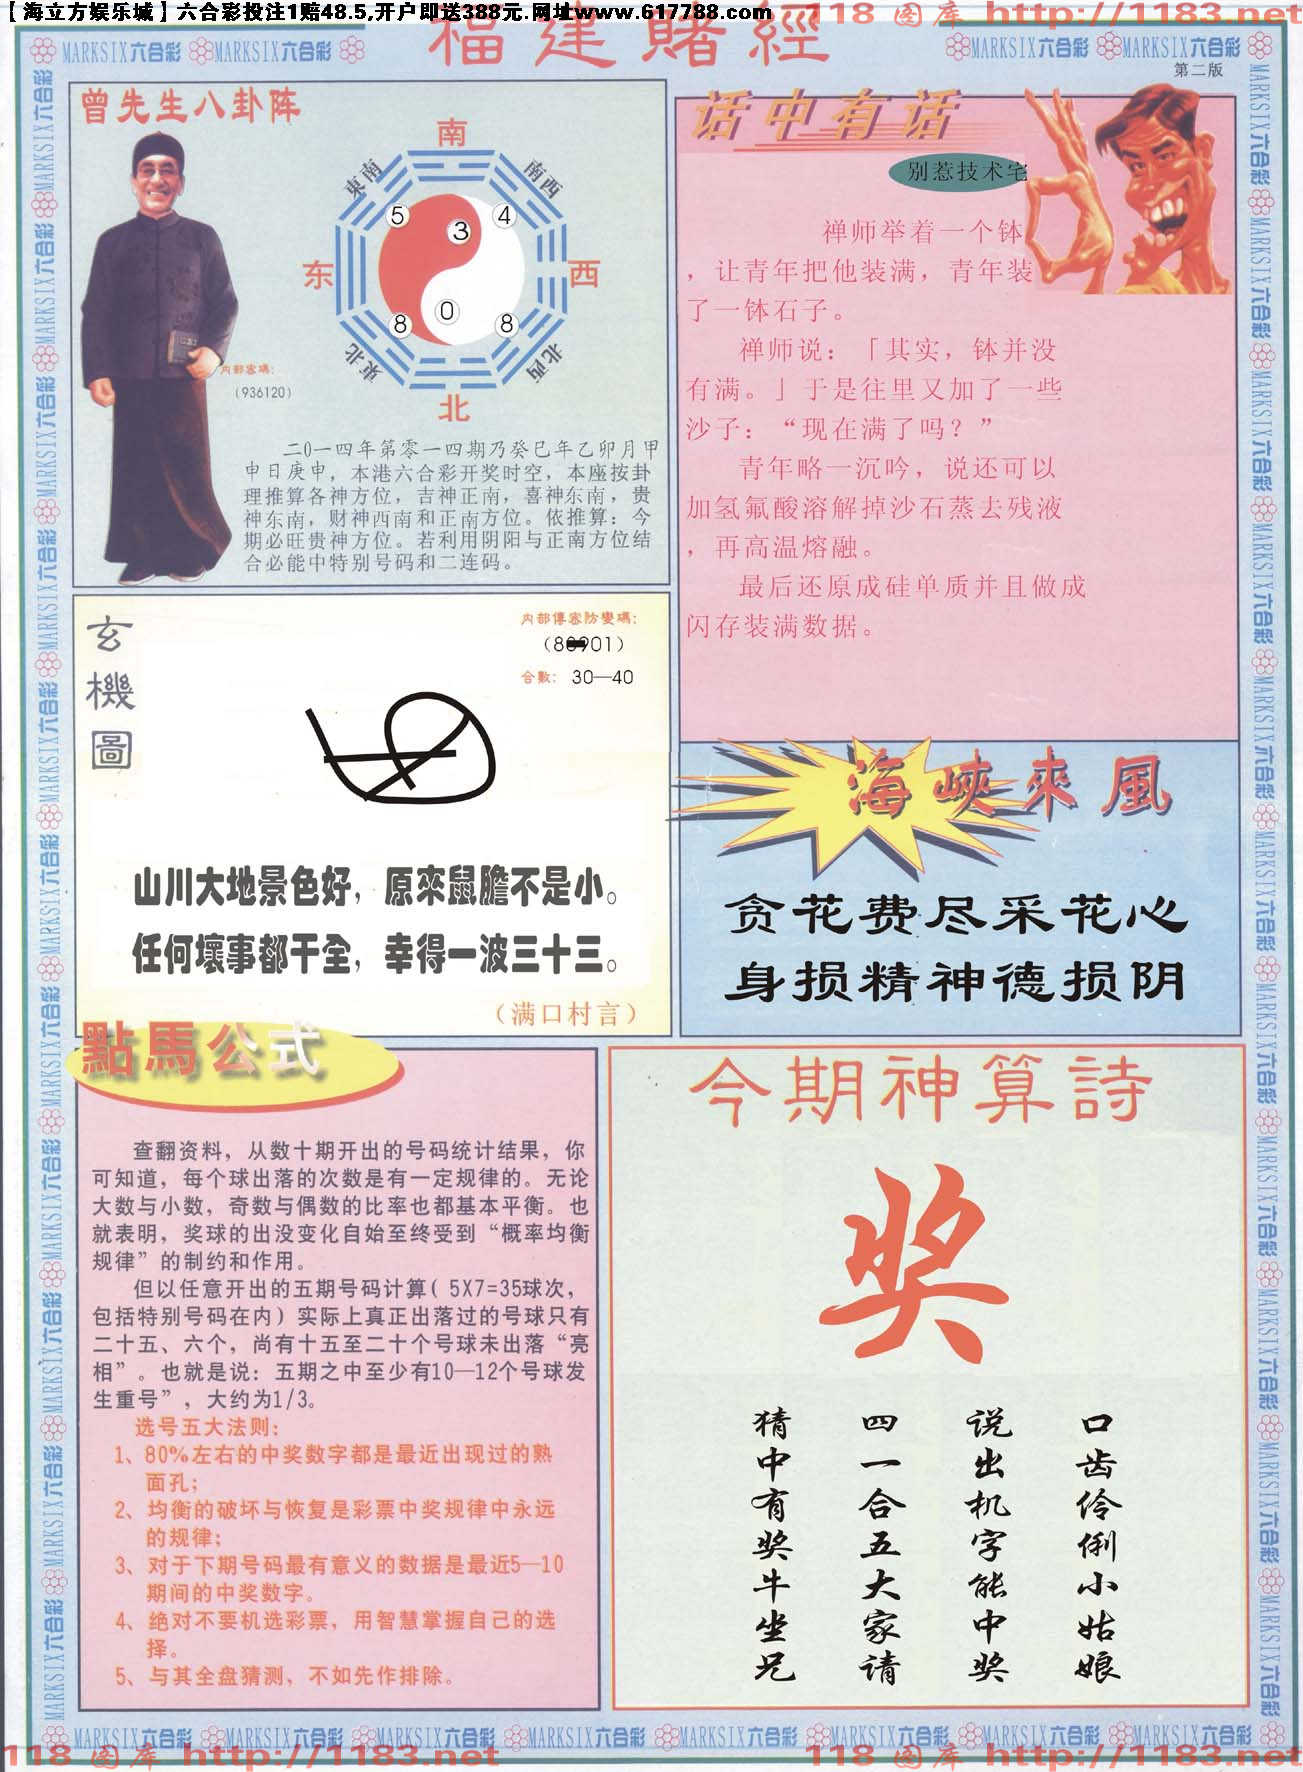 【海立方娱乐城】六合彩投注1赔48.5,开户即送388元.网址www.617788.com
118 图库 http://1183.net
福建赌經
MARKSIX六合彩 MARKSIX六合彩
MARKSIX六合彩 MARKSIX六合彩
第二版
曾先生八卦阵
南
東南
南西
5
3
4
东
西
8
0
8
東北
北西
北
内部密碼:
(936120)
二0一四年第零一四期乃癸巳年乙卯月甲
申日庚申，本港六合彩开奖时空，本座按卦
理推算各神方位，吉神正南，喜神东南，贵
神东南，财神西南和正南方位。依推算：今
期必旺贵神方位。若利用阴阳与正南方位结
合必能中特别号码和二连码。
话中有话
别惹技术宅
禅师举着一个钵
，让青年把他装满，青年装
了一钵石子。
禅师说：「其实，钵并没
有满。」于是往里又加了一些
沙子：“现在满了吗？”
青年略一沉吟，说还可以
加氢氟酸溶解掉沙石蒸去残液
，再高温熔融。
最后还原成硅单质并且做成
闪存装满数据。
玄機圖
内部傳密防變碼:
合數: 30—40
山川大地景色好，原來鼠膽不是小。
任何壞事都干全，幸得一波三十三。
（满口村言）
海峽來風
贪花费尽采花心
身损精神德损阴
點馬公式
查翻资料，从数十期开出的号码统计结果，你
可知道，每个球出落的次数是有一定规律的。无论
大数与小数，奇数与偶数的比率也都基本平衡。也
就表明，奖球的出没变化自始至终受到“概率均衡
规律”的制约和作用。
但以任意开出的五期号码计算( 5X7=35球次，
包括特别号码在内）实际上真正出落过的号球只有
二十五、六个，尚有十五至二十个号球未出落“亮
相”。也就是说：五期之中至少有10—12个号球发
生重号”，大约为1/3。
选号五大法则:
1、80%左右的中奖数字都是最近出现过的熟
面孔;
2、均衡的破坏与恢复是彩票中奖规律中永远
的规律;
3、对于下期号码最有意义的数据是最近5—10
期间的中奖数字。
4、绝对不要机选彩票，用智慧掌握自己的选
择。
5、与其全盘猜测，不如先作排除。
今期神算詩
奖
口齿伶俐小姑娘
说出机字能中奖
四一合五大家请
猜中有奖牛坐兄
MARKSIX六合彩 MARKSIX六合彩 MARKSIX六合彩 MARKSIX六合彩 MARKSIX六合彩 MARKSIX六合彩 MARKSIX六合彩 MARKSIX六合彩
118 图库 http://1183.net
118 图库 http://1183.net